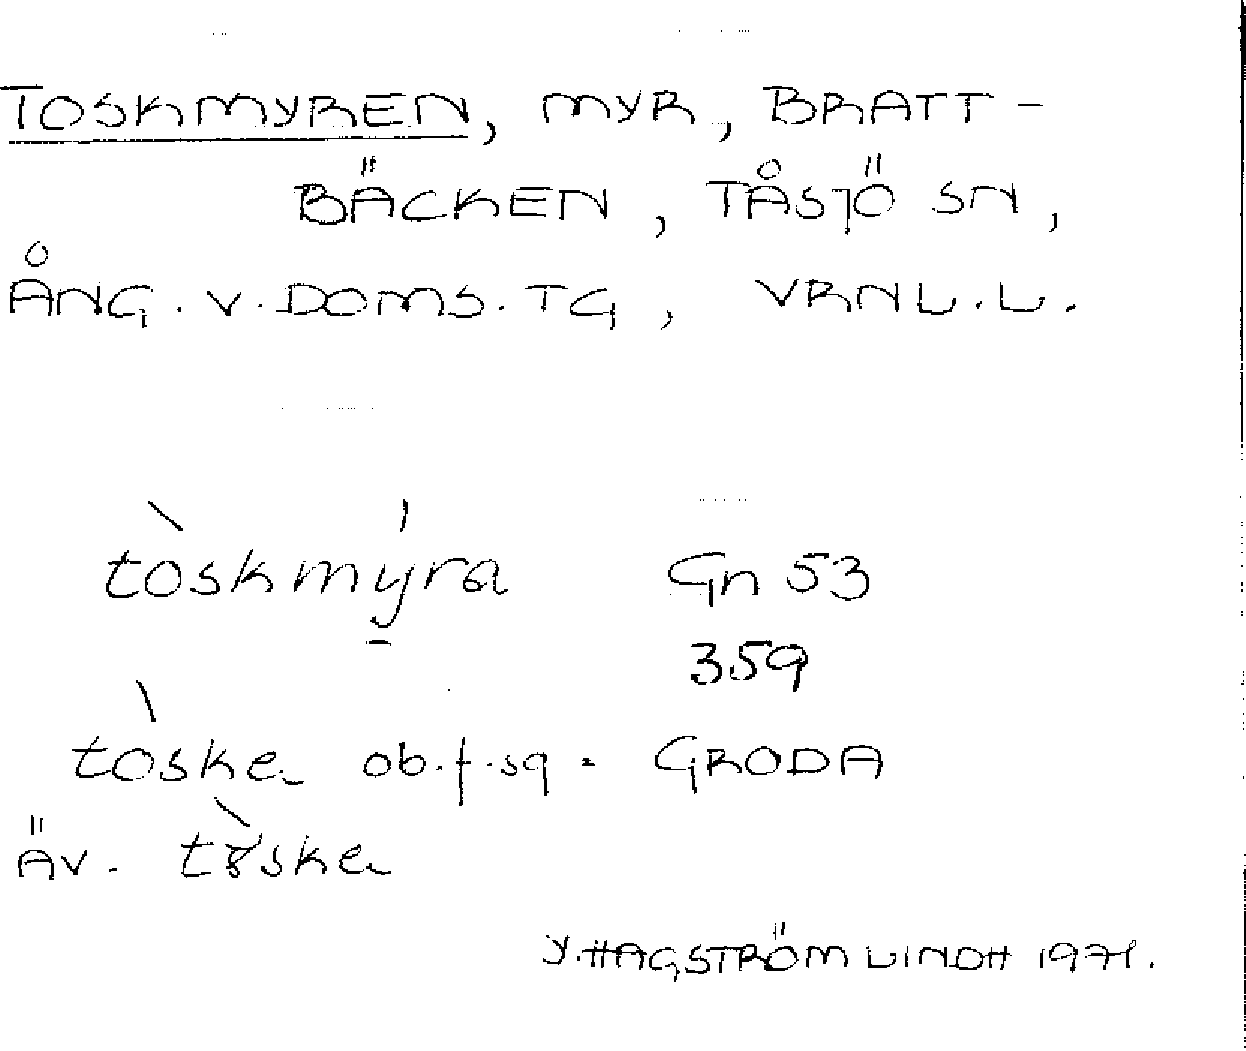 TOSKMYREN, MYR, BRATT-
BÄCKEN, TÅSJÖ SN,
ÅNG. V. DOMS. TG, VRNL.L.
tòskmýra Gn 53
359
tòske ob. f. sg. GRODA
ÄV. tøske
Y. HAGSTRÖM LINDH 1971.